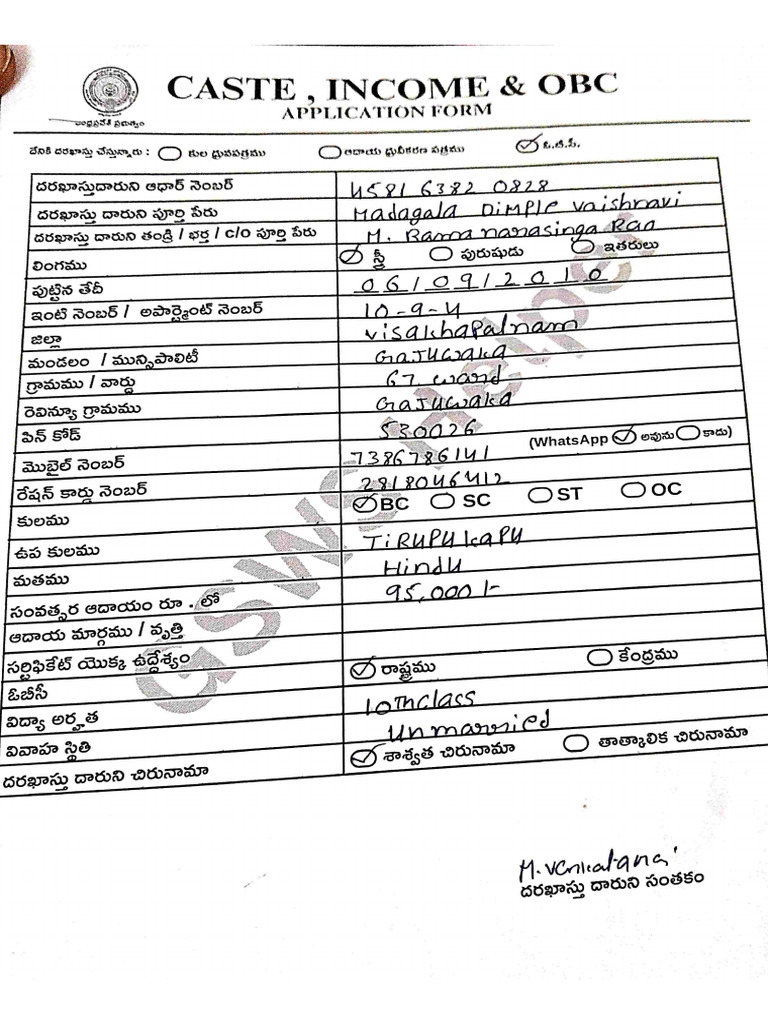 CASTE , INCOME & OBC
APPLICATION FORM
ఆంధ్రప్రదేశ్ ప్రభుత్వం
దేనికి దరఖాస్తు చేస్తున్నారు : కుల ధ్రువపత్రము ఆదాయ ధ్రువీకరణ పత్రము ఓ.బి.సి.
దరఖాస్తుదారుని ఆధార్ నెంబర్ 4581 6382 0828
దరఖాస్తు దారుని పూర్తి పేరు Madagala Dimple Vaishnavi
దరఖాస్తు దారుని తండ్రి / భర్త / c/o పూర్తి పేరు M. Rama nanasinga Rao
లింగము స్త్రీ పురుషుడు ఇతరులు
పుట్టిన తేదీ 06/09/2010
ఇంటి నెంబర్ / అపార్ట్మెంట్ నెంబర్ 10-9-4
జిల్లా Visakhapatnam
మండలం / మున్సిపాలిటీ Gajuwaka
గ్రామము / వార్డు 67 ward
రెవిన్యూ గ్రామము Gajuwaka
పిన్ కోడ్ 530026
మొబైల్ నెంబర్ 7386786141 (WhatsApp అవును కాదు)
రేషన్ కార్డు నెంబర్ 2818046412
కులము BC SC ST OC
ఉప కులము TiRUPU KaPU
మతము Hindu
సంవత్సర ఆదాయం రూ . లో 95,000/-
ఆదాయ మార్గము / వృత్తి
సర్టిఫికేట్ యొక్క ఉద్దేశ్యం
ఓబీసీ రాష్ట్రము కేంద్రము
విద్యా అర్హత 10th class
వివాహ స్థితి unmarried
దరఖాస్తు దారుని చిరునామా శాశ్వత చిరునామా తాత్కాలిక చిరునామా
M. Venkatanai
దరఖాస్తు దారుని సంతకం
GSWS Helper